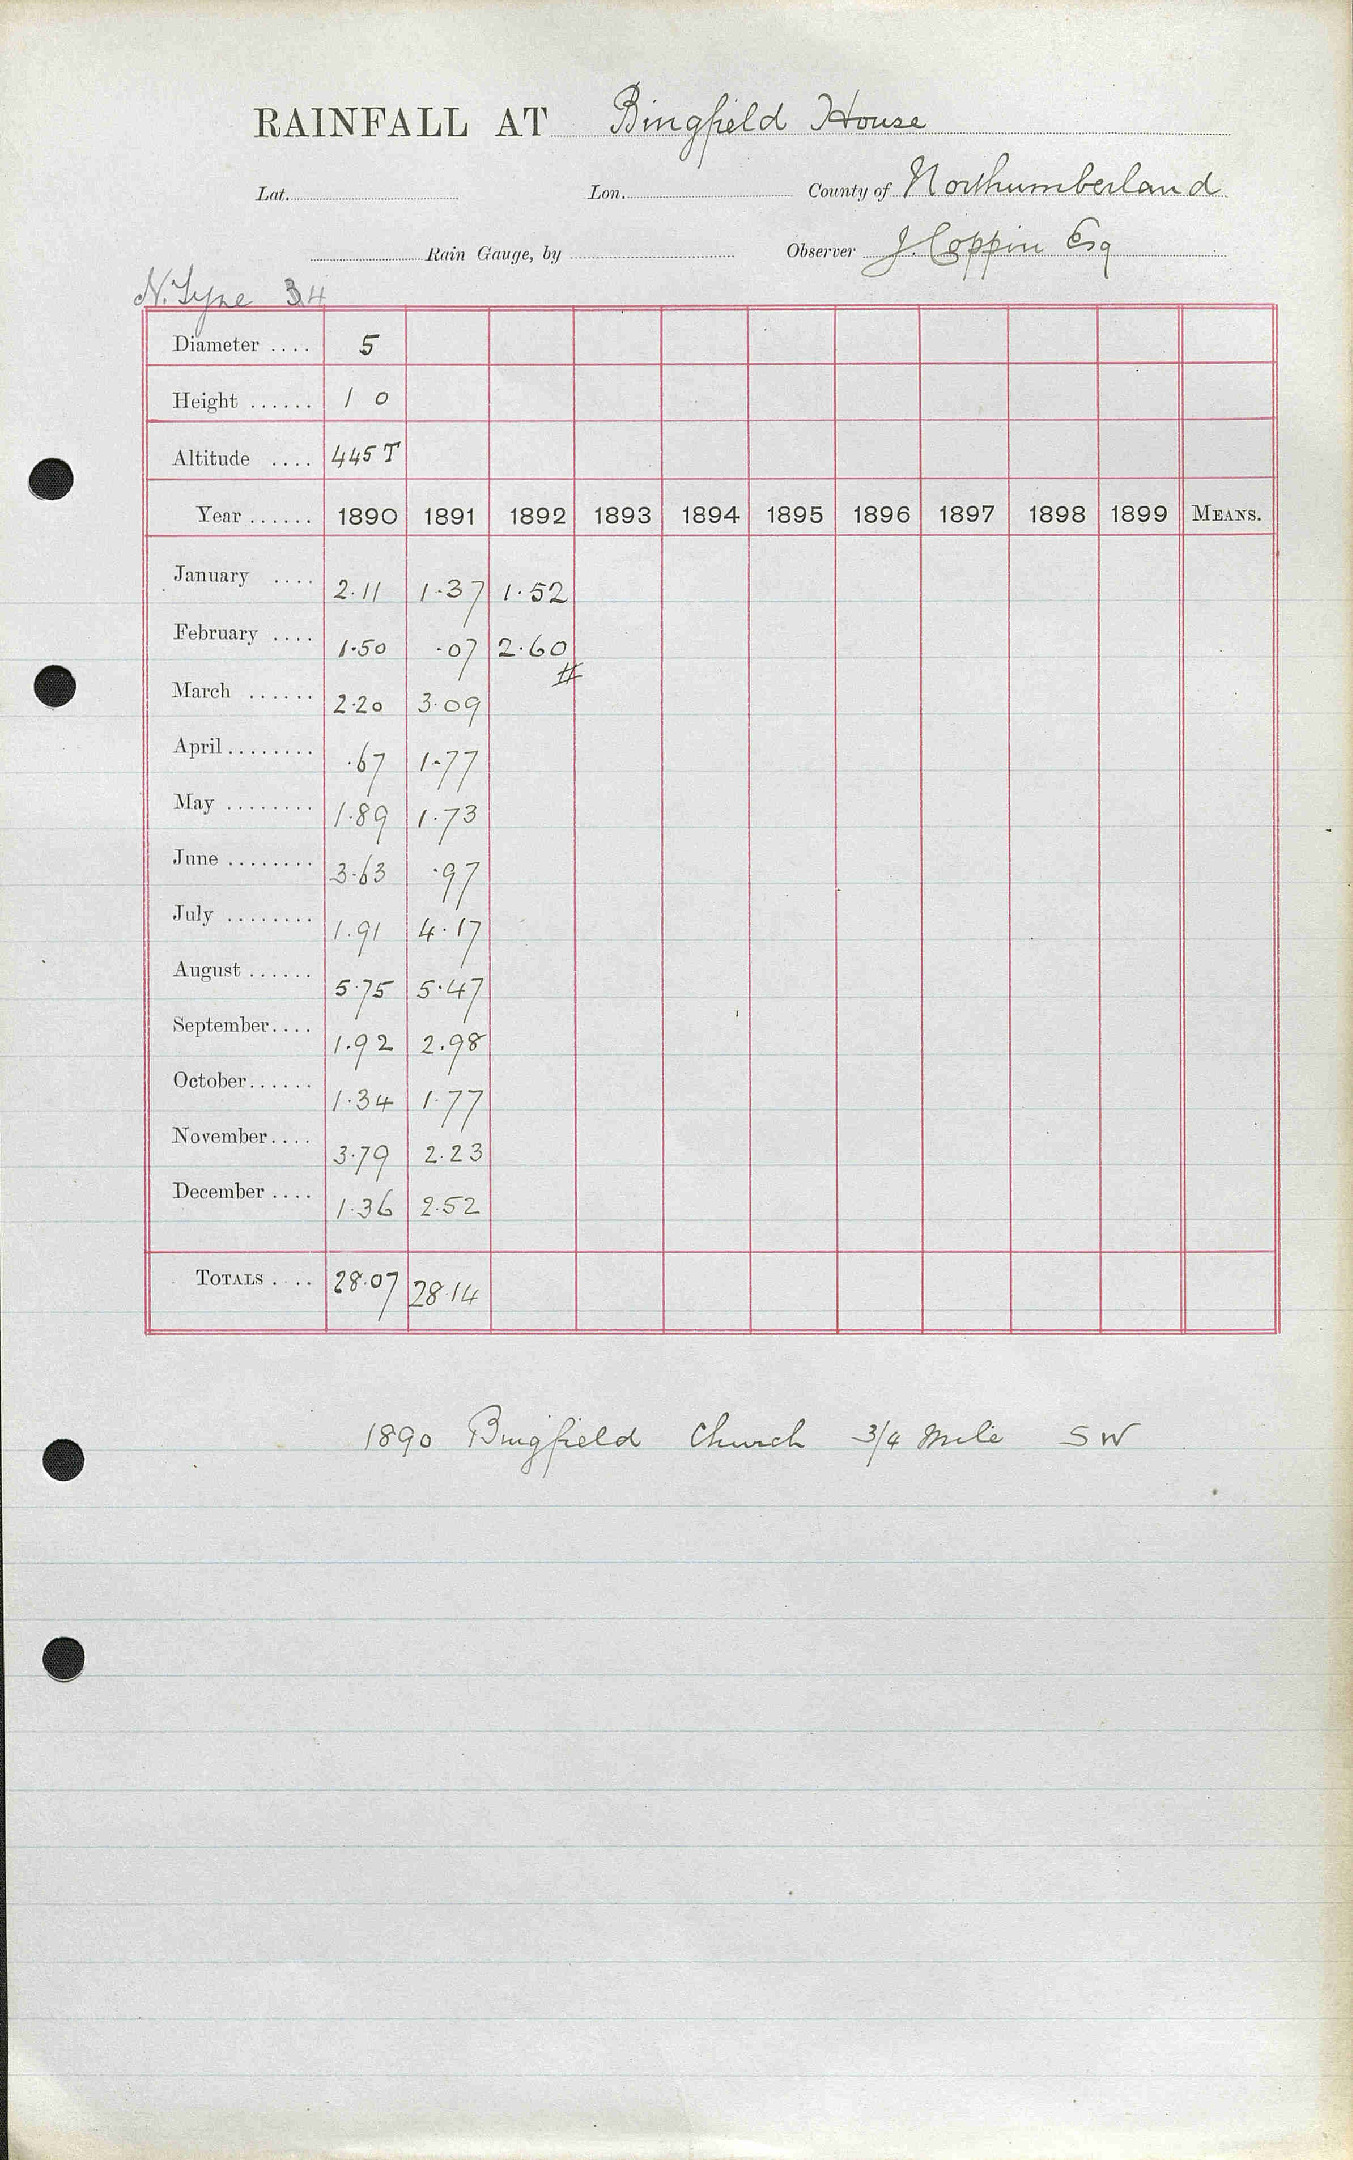 RAINFALL AT Bingfield House
Lat. Lon. County of Northumberland
Rain Gauge, by Observer J. Coppin Esq
N. Tyne 34
Diameter .... 5
Height ...... 1 0
Altitude .... 445 T
Year ...... 1890 1891 1892 1893 1894 1895 1896 1897 1898 1899 MEANS.
January .... 2.11 1.37 1.52
February .... 1.50 .07 2.60
#
March ...... 2.20 3.09
April ........ .67 1.77
May ........ 1.89 1.73
June ........ 3.63 .97
July ........ 1.91 4.17
August ...... 5.75 5.47
September.... 1.92 2.98
October...... 1.34 1.77
November.... 3.79 2.23
December .... 1.36 2.52
TOTALS .... 28.07 28.14
1890 Bingfield Church 3/4 Mile SW